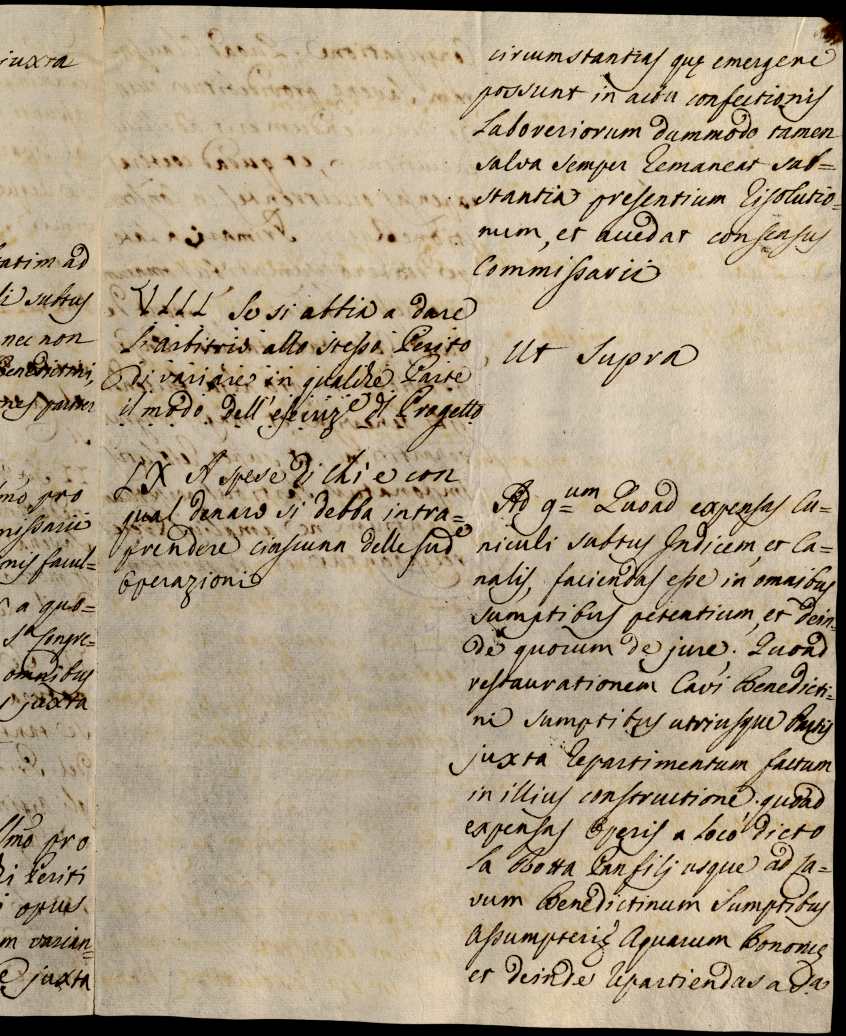 juxta
tatim ad
li subtus
nec non
Benedictini,
nes pariter
mo pro
missarii
nis facul=
a quo=
Sa Congre=
omnibus
s juxta
mo pro
Periti
opus
m varian=
juxta
VIII Se si abbia a dare
l'arbitrio allo stesso Perito
di variare in qualche Parte
il modo dell'esecuze. del Progetto
IX A spese di chi e con
qual denaro si debba intra=
prendere ciascuna delle sude
Operazioni
circumstantias que emergere
possunt in actu confectionis
Laboreriorum dummodo tamen
salva semper remaneat sub=
stantia presentium Resolutio=
num, et accedat consensus
Commissarii
Ut Supra
Ad 9=um Quoad expensas Cu=
niculi subtus Indicem, et Ca=
nalis, faciendas esse in omnibus
sumptibus petentium, et dein=
de quorum de jure. Quoad
restaurationem Cavi Benedicti=
ni sumptibus utriusque Partis
juxta repartimentum factum
in illius constructione, quoad
expensas Operis a loco dicto
la Botta Panfilj usque ad Ca=
vum Benedictinum Sumptibus
Assumpterie Aquarum Bononie
et deinde repartiendas a Da